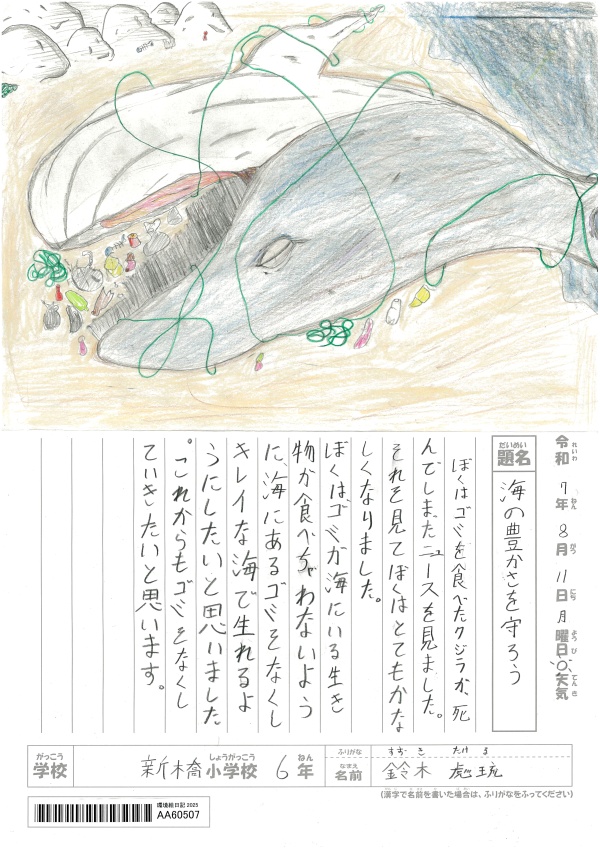 令和7年8月11日月曜日 天気
れいわ ねん がつ にち ようび てんき
だいめい
題名
海の豊かさを守ろう
ぼくはゴミを食べたクジラが、死
んでしまたニュースを見ました。
それを見てぼくはとてもかな
しくなりました。
ぼくは、ゴミが海にいる生き
物が食べちゃわないよう
に、海にあるゴミをなくし
キレイな海で生れるよ
うにしたいと思いました
。これからもゴミをなくし
ていきたいと思います。
がっこう しょうがっこう ねん
学校 小学校 6年
ふりがな すずき たける
なまえ
名前 鈴木
(漢字で名前を書いた場合は、ふりがなをふってください)
環境絵日記 2025
AA60507